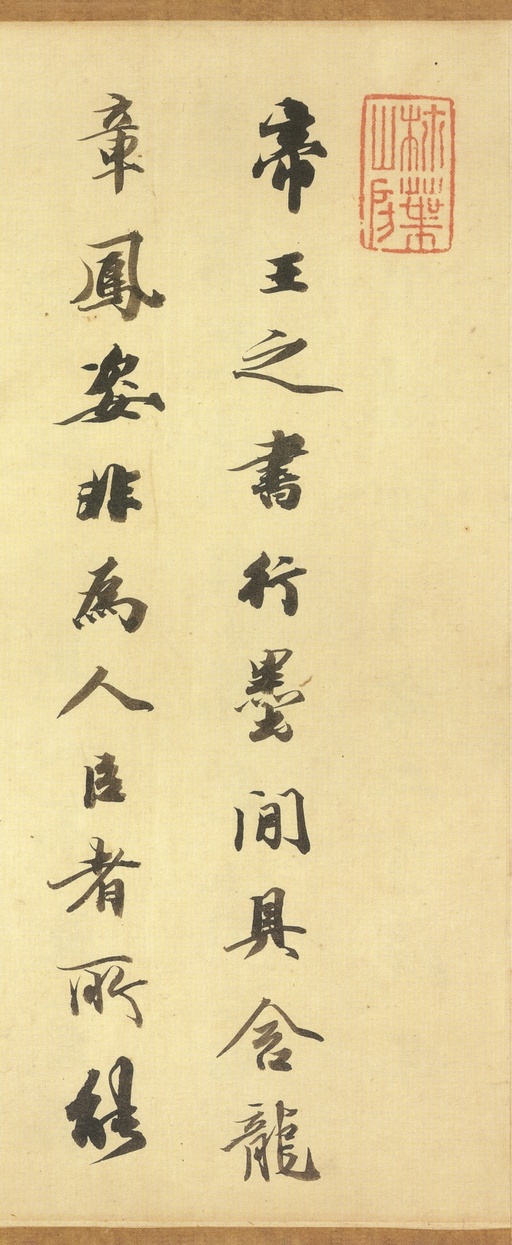 帝王之書行墨間具含龍
章鳳姿非為人臣者所能